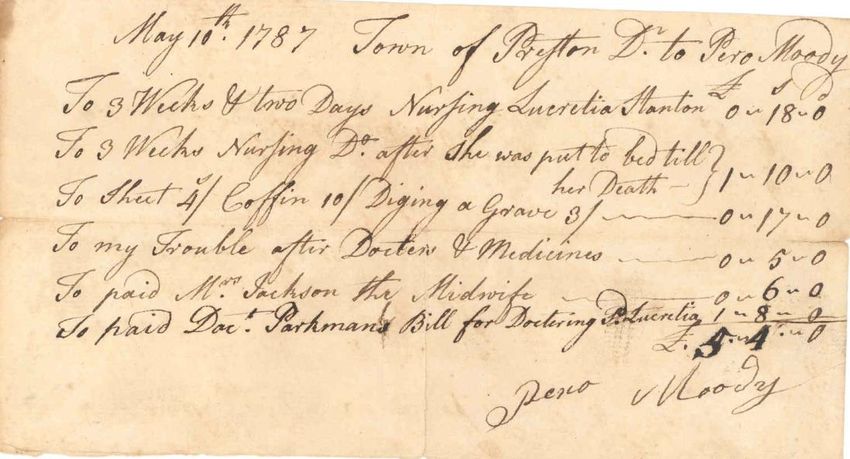 May 10th. 1787 Town of Preston Dr. to Pero Moody
£ s d
To 3 Weeks & two Days Nursing Lucretia Stanton 0 " 18 " 0
To 3 Weeks Nursing Do. after she was put to bed till
her Death — } 1 " 10 " 0
To Sheet 4/ Coffin 10/ Diging a Grave 3/ — 0 " 17 " 0
To my Trouble after Docters & Medicines — 0 " 5 " 0
To paid Mrs Jackson the Midwife — 0 " 6 " 0
To paid Doct. Parkmans Bill for Doctering Lucretia 1 " 8 " 0
£. 5 " 4 " 0
Pero Moody